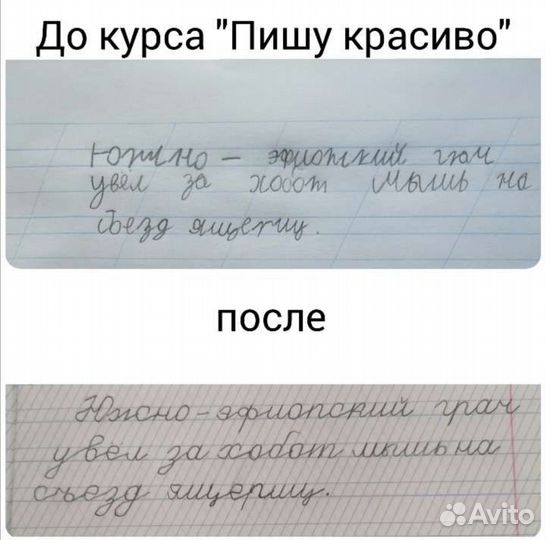 До курса "Пишу красиво"
Южно - эфиопский грач
увел за хобот мышь на
съезд ящериц.
после
Южно-эфиопский грач
увел за хобот мышь на
съезд ящериц.
Avito